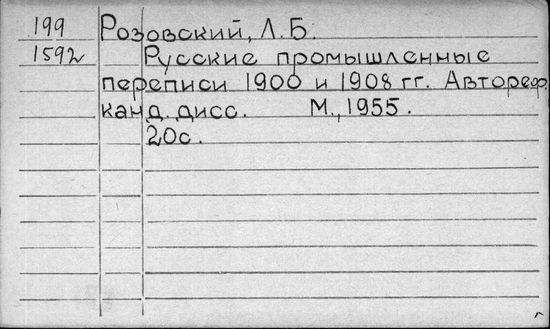 199 Розовский, Л.Б.
1592 Русские промышленные
переписи 1900 и 1908 гг. Автореф.
канд. дисс. М., 1955.
20с.